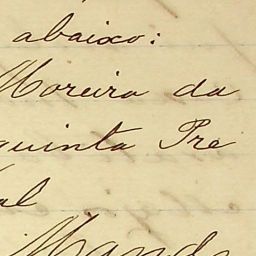 abaixo:
Moreira da
quinta Pre
al
Mand